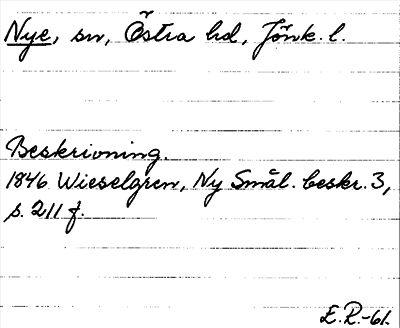 Nye, sn, Östra hd, Jönk. l.
Beskrivning.
1846 Wieselgren, Ny Smål. beskr. 3,
s. 211 f.
E.R.-61.